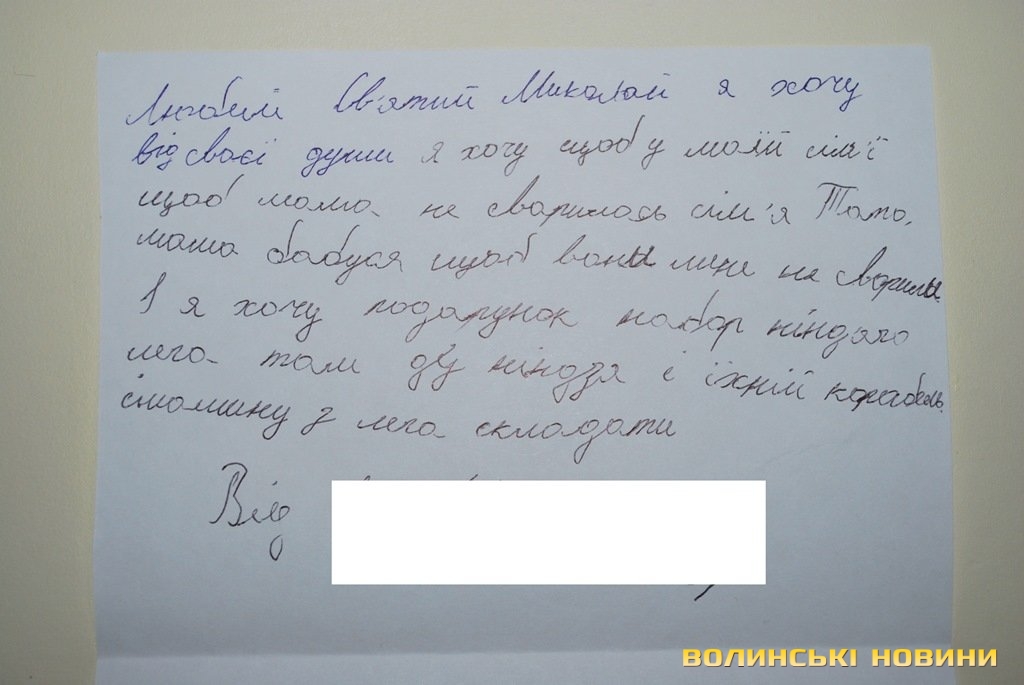 Любий Св'ятий Миколай я хочу
від своєї души я хочу щоб у моїй сім'ї
щоб мама не сварилась сім'я Тато,
мама бабуся щоб вони мене не сварилы.
І я хочу подарунок набор ніндяго
лего там ду ніндзя і їхній корабель.
з лего складати
Від
ВОЛИНСЬКІ НОВИНИ